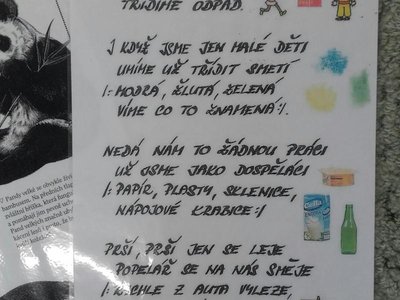 TŘÍDÍME ODPAD.
I KDYŽ JSME JEN MALÉ DĚTI
UMÍME UŽ TŘÍDIT SMETÍ
/: MODRÁ, ŽLUTÁ, ZELENÁ
VÍME CO TO ZNAMENÁ:/.
NEDÁ NÁM TO ŽÁDNOU PRÁCI
UŽ JSME JAKO DOSPĚLÁCI
/: PAPÍR, PLASTY, SKLENICE,
NÁPOJOVÉ KRABICE:/
PRŠÍ, PRŠÍ JEN SE LEJE
POPELÁŘ SE NA NÁS SMĚJE
/: RYCHLE Z AUTA VYLEZE,
Pandy velké se obvykle živí
bambusem. Na předních tlap